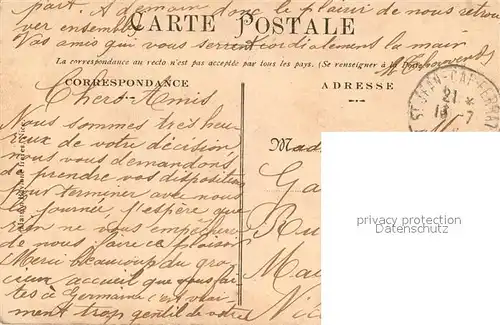 part. A demain donc le plaisir de nous retrou
ver ensemble
CARTE POSTALE
Vos amis qui vous serrent cordialement la main
La correspondance au recto n'est pas acceptée par tous les pays. (Se renseigner à la Poste)
CORRESPONDANCE
ADRESSE
Chers Amis
ST JEAN-CAP-FERRAT
21 *
13-7
Nous sommes très heu
reux de votre décision
nous vous demandons
de prendre vos dispositions
pour terminer avec nous
la journée, j'espère que
rien ne vous empêchera
de nous faire ce plaisir
Merci beaucoup du gra
cieux accueil que vous fai
tes à Germaine c'est vrai
ment trop gentil de votre
Mad
Ga
Ru
Mai
Nic
privacy protection
Datenschutz